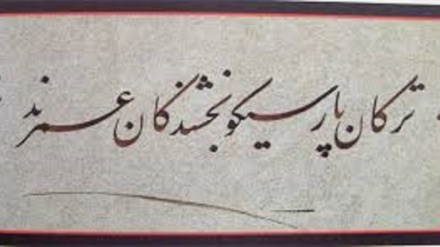 ترکان پارسیگو بخشندگان عمرند